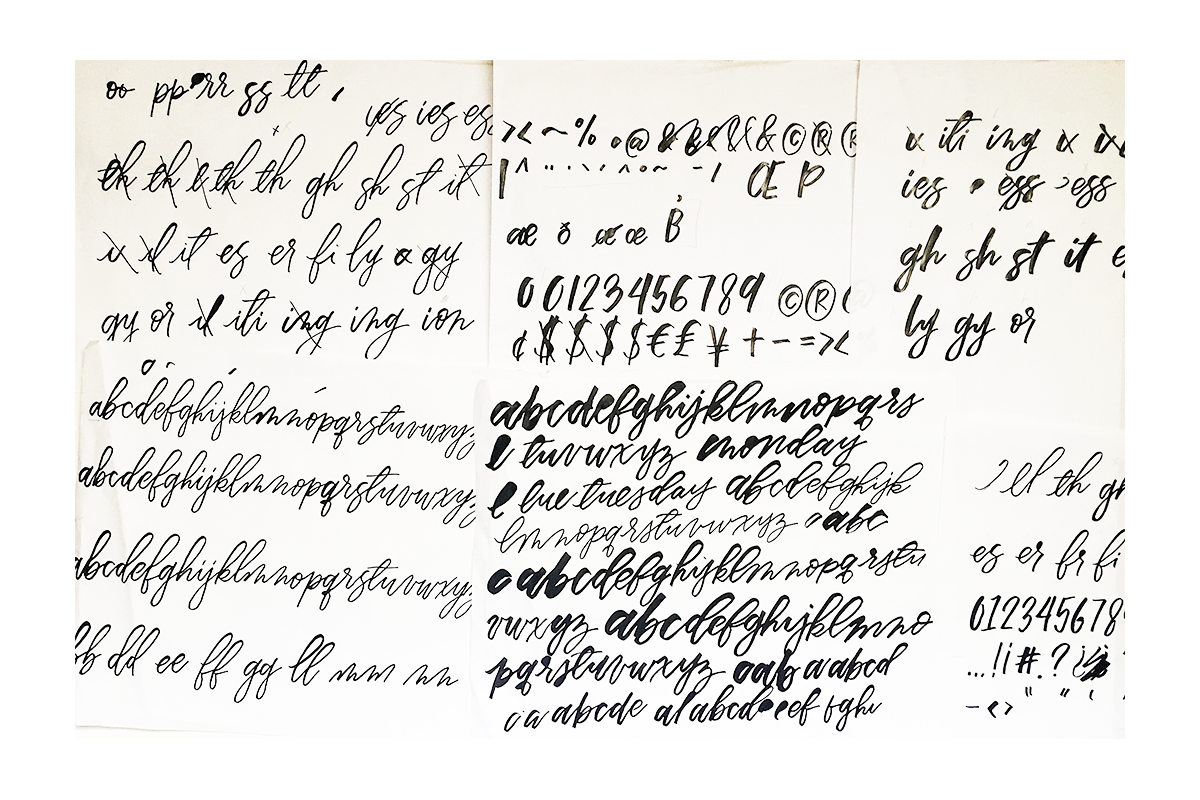 oo pp rr ss tt ,
ies ies es
th th th th gh sh st it
it es er fi ly gy
gy or iti ing ing ion
abcdefghijklmnopqrstuvwxyz
abcdefghijklmnopqrstuvwxyz
abcdefghijklmnopqrstuvwxyz
bb dd ee ff gg ll mm nn
>< ~ % @ & & & & © ® ®
Œ Þ
æ ð œ œ B
0 0123456789 © ®
¢ $ $ $ $ € £ ¥ + - = ><
abcdefghijklmnopqrs
l tuvwxyz monday
l lue tuesday abcdefghijk
lmnopqrstuvwxyz abc
c abcdefghijklmnopqrstu
vwxyz abcdefghijklmno
pqrstuvwxyz oab aabcd
i a abcde al abcd eef fghi
iti ing
ies ess ess
gh sh st it e
ly gy or
el th gh
es er fr fi
012345678
...!¡ #.? ¿
" " '
- < >